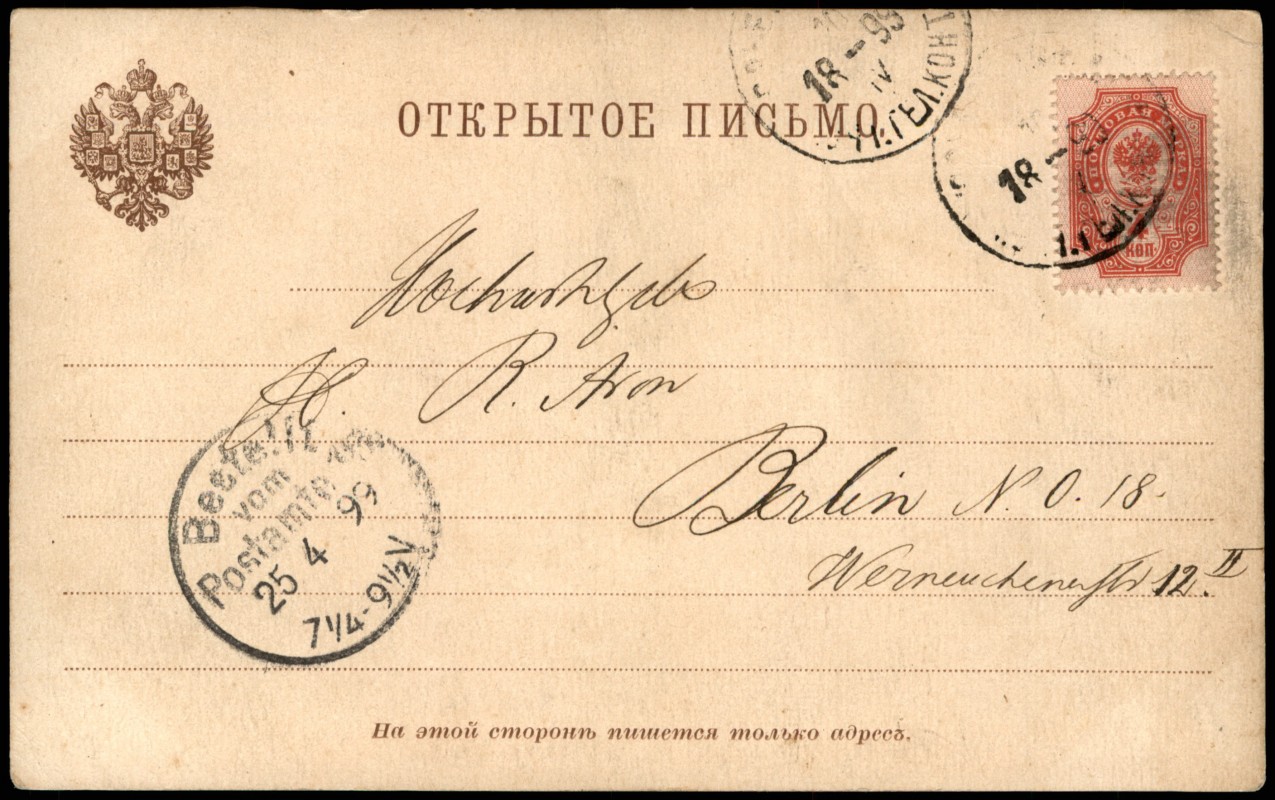 ОТКРЫТОЕ ПИСЬМО
18 - 99
IV
ТЕЛ. КОНТ
18 - 9
ПОЧТОВАЯ МАРКА
КОП.
R. Aron
Berlin N. O. 18.
Werneuchenerstr 12. II
Bestellt
vom
Postamte
25 4 99
7 1/4-9 1/2 V
На этой сторонѣ пишется только адресъ.